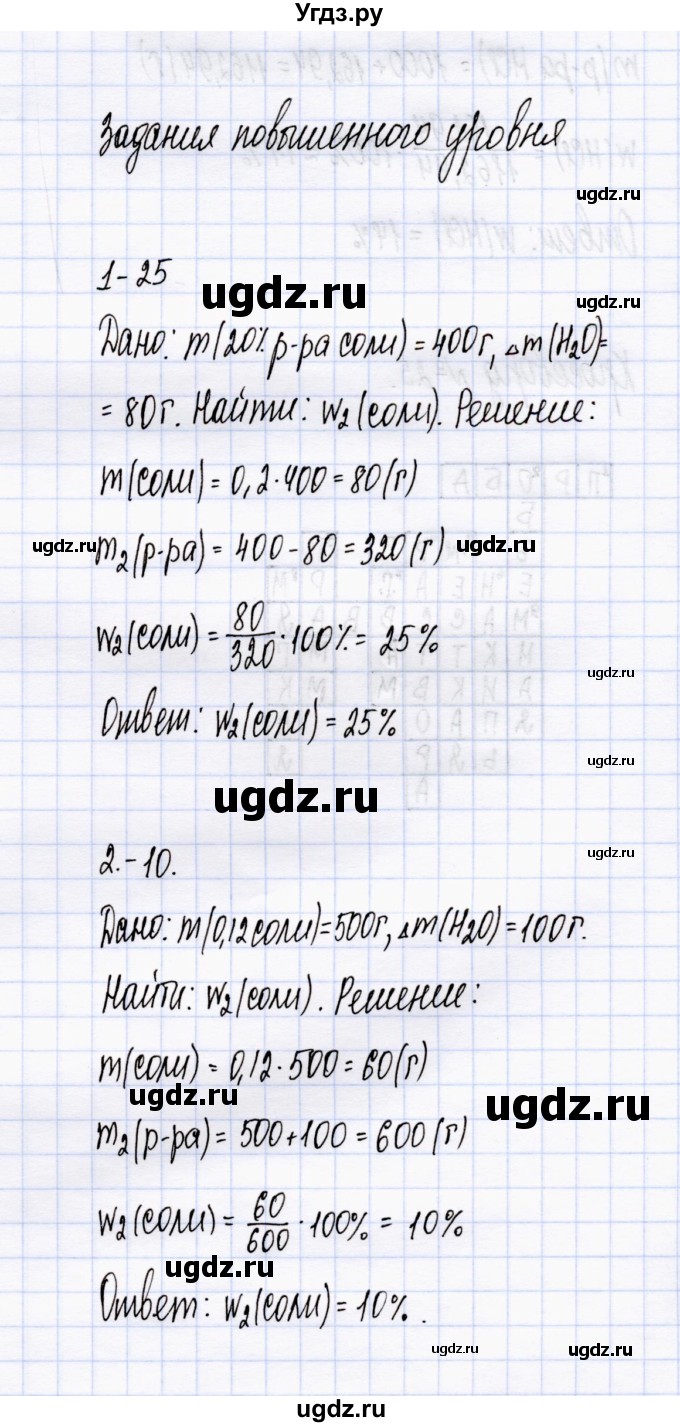 Угдз.ру
Задания повышенного уровня
ugdz.ru
1-25
ugdz.ru
ugdz.ru
Дано: m(20% р-ра соли) = 400г, △m(H₂O)=
= 80г. Найти: w₂(соли). Решение:
m(соли) = 0,2·400 = 80(г)
ugdz.ru
m₂(р-ра) = 400-80 = 320(г)
ugdz.ru
w₂(соли) = 80/320 · 100% = 25%
ugdz.ru
Ответ: w₂(соли) = 25%
ugdz.ru
ugdz.ru
2.-10.
ugdz.ru
Дано: m(0,12 соли)=500г, △m(H₂O)=100г.
Найти: w₂(соли). Решение:
m(соли) = 0,12·500 = 60(г)
ugdz.ru
ugdz.ru
m₂(р-ра) = 500+100 = 600(г)
w₂(соли) = 60/600 · 100% = 10%
ugdz.ru
Ответ: w₂(соли) = 10%.
ugdz.ru
ugdz.ru
ugdz.ru